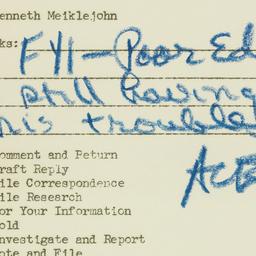 enneth Meiklejohn
ks:
FYI - Poor Ed
still having
his trouble
ACE
omment and Return
raft Reply
ile Correspondence
ile Research
or Your Information
old
nvestigate and Report
ote and File